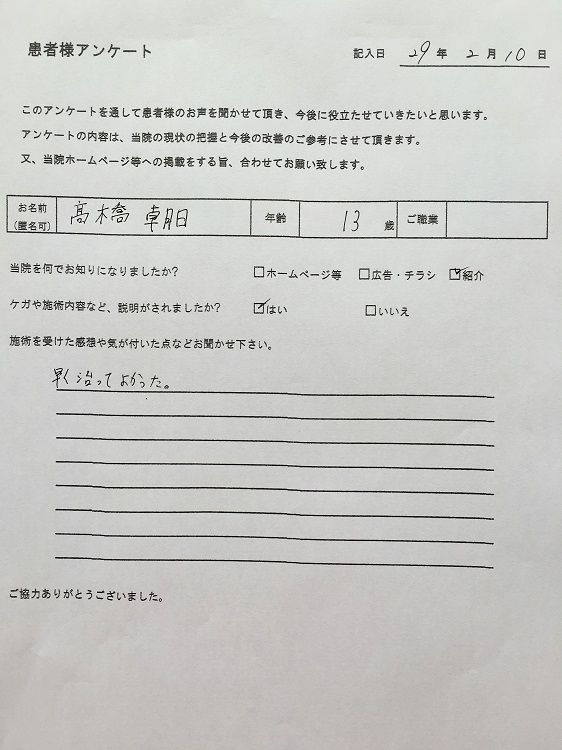 患者様アンケート
記入日 29 年 2 月 10 日
このアンケートを通して患者様のお声を聞かせて頂き、今後に役立たせていきたいと思います。
アンケートの内容は、当院の現状の把握と今後の改善のご参考にさせて頂きます。
又、当院ホームページ等への掲載をする旨、合わせてお願い致します。
お名前
(匿名可)
髙橋 朝日
年齢 13 歳 ご職業
当院を何でお知りになりましたか? □ホームページ等 □広告・チラシ ☑紹介
ケガや施術内容など、説明がされましたか? ☑はい □いいえ
施術を受けた感想や気が付いた点などお聞かせ下さい。
早く治ってよかった。
ご協力ありがとうございました。